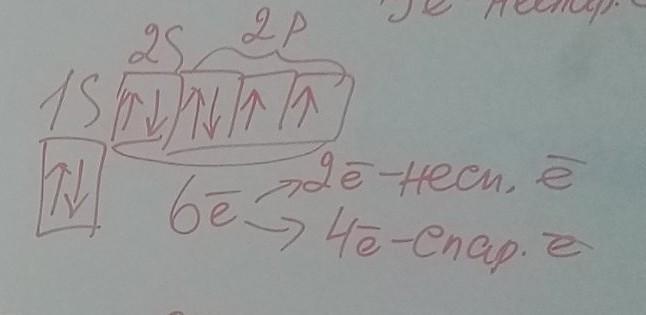 3е неспар.
2S 2P
1S ↑↓ ↑↓ ↑ ↑
↑↓
6ē → 2ē-несп. ē
→ 4ē-спар. ē